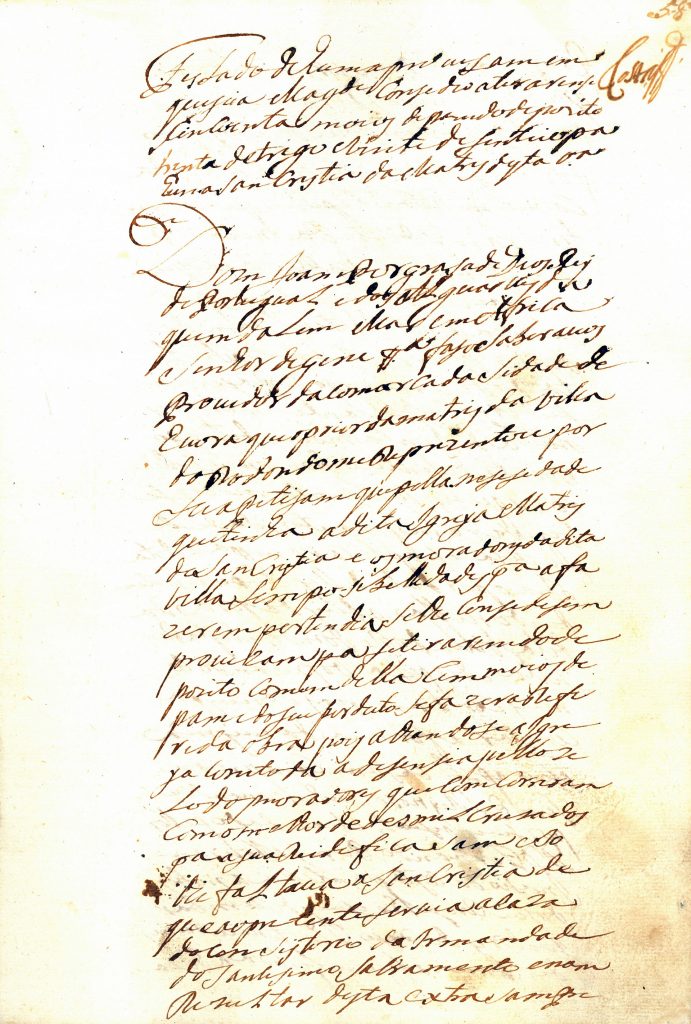 58
Treslado de huma provizam em
que sua Magde Consedeo a tirarense
sincoenta moios de pam do depozito
trinta de trigo e vinte de senteio pa
huma San Cristia da Matris desta va
Dom Joam por grasa de Deos Rey
de Portugual e dos Alguarves da
quem da Lem Mar em Africa
Senhor de Gine &ca faso saber a vos
Provedor da Comarca da Sidade de
Evora que o prior da matris da villa
do Redondo me Reprezentou por
sua petisam que pella nesesidade
que tinha a dita Igreja Matris
de San Cristia e os moradores da dita
villa sem posibellidades pa a fa
zerem pertendia se lhe Consedesem
provizam pa se tirarem do de
pozito Comum della Cem moios de
pam e do seu porduto se fazer a Refe
rida obra pois achandose a Igre
ja Com toda a desensia pello ze
Lo dos moradores que Com Correram
Com o melhor de des mil Cruzados
pa a sua Reidifica sam e so
lhe faltava a San Cristia de
que ao prezente servia a Caza
do Consistorio da Irmandade
do Santisimo Sacramento e nam
Rezultar desta extrasam pre